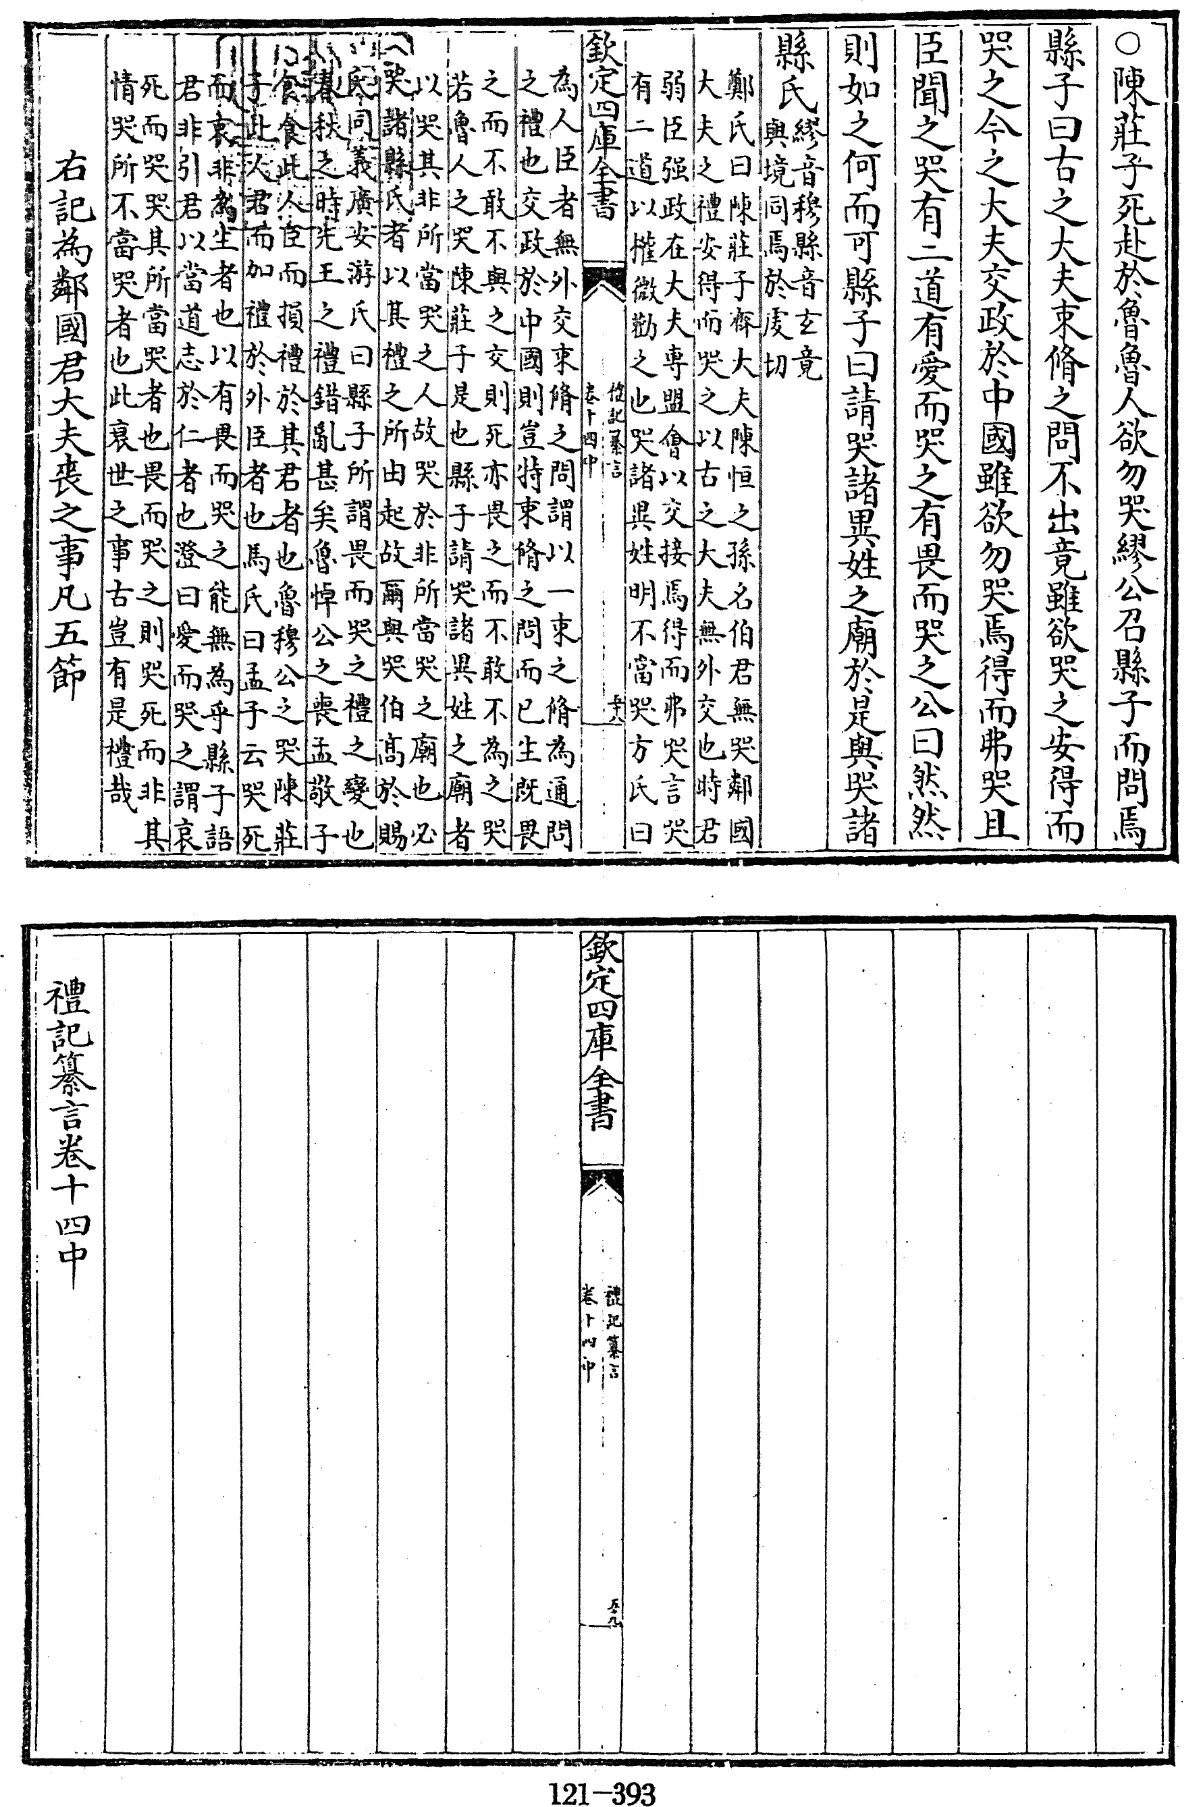 ○陳莊子死赴於魯魯人欲勿哭繆公召縣子而問焉
縣子曰古之大夫束脩之問不出竟雖欲哭之安得而
哭之今之大夫交政於中國雖欲勿哭焉得而弗哭且
臣聞之哭有二道有愛而哭之有畏而哭之公曰然然
則如之何而可縣子曰請哭諸異姓之廟於是與哭諸
縣氏
繆音穆縣音玄竟
與境同焉於虔切
鄭氏曰陳莊子齊大夫陳恒之孫名伯君無哭鄰國
大夫之禮安得而哭之以古之大夫無外交也時君
弱臣强政在大夫專盟會以交接焉得而弗哭言哭
有二道以權微勸之也哭諸異姓明不當哭方氏曰
欽定四庫全書
禮記纂言
卷十四中
為人臣者無外交束脩之問謂以一束之脩為通問
之禮也交政於中國則豈特束脩之問而已生既畏
之而不敢不與之交則死亦畏之而不敢不為之哭
若魯人之哭陳莊子是也縣子請哭諸異姓之廟者
以哭其非所當哭之人故哭於非所當哭之廟也必
哭諸縣氏者以其禮之所由起故爾與哭伯髙於賜
氏同義廣安游氏曰縣子所謂畏而哭之禮之變也
春秋之時先王之禮錯亂甚矣魯悼公之喪孟敬子
食食此人臣而損禮於其君者也魯穆公之哭陳莊
子此人君而加禮於外臣者也馬氏曰孟子云哭死
而哀非為生者也以有畏而哭之能無為乎縣子語
君非引君以當道志於仁者也澄曰愛而哭之謂哀
死而哭哭其所當哭者也畏而哭之則哭死而非其
情哭所不當哭者也此衰世之事古豈有是禮哉
右記為鄰國君大夫喪之事凡五節
欽定四庫全書
禮記纂言
卷十四中
五九
禮記纂言卷十四中
121-393